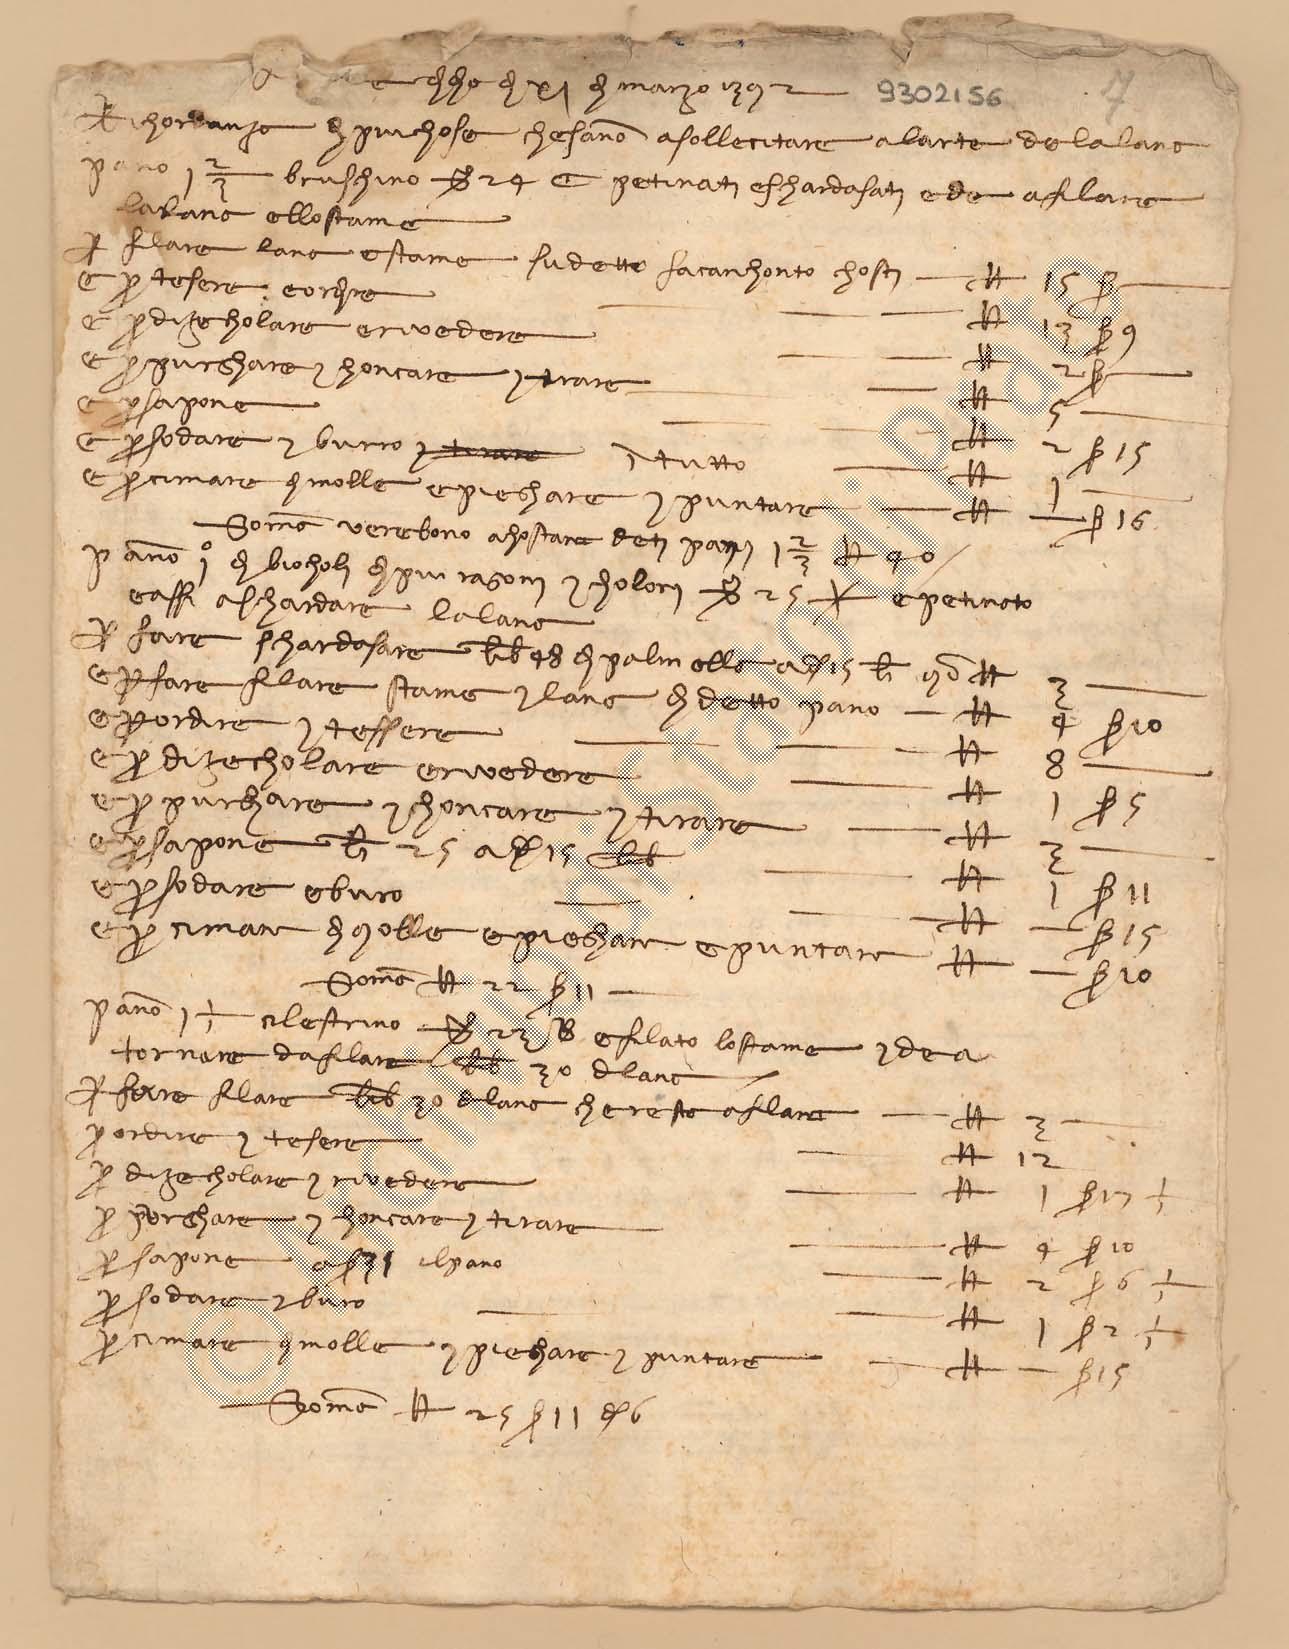 dì xi di marzo 1392 9302156 7
Richordanza di piu chose che sano a sollecitare a l arte de la lana
pano 1 2/3 bruschino 24 C petinati e schardasati e de a filare
la lana e llo stame
Per filare lana e stame sudetto facan chonto chosti — ₶ 15 ß —
e per tesere e ordire — ₶ 13 ß 9
e per dizecholare e rivedere — ₶ 2 ß —
e per purghare e choncare e tirare — ₶ 5 —
e per sapone — ₶ 2 ß 15
e per sodare e burro e tirare i tutto — ₶ 1 —
e per cimare di molle e pieghare e puntare — ₶ — ß 16
Soma verebono a chostare deti pani 1 2/3 ₶ 40
pano 1° di biocholi di piu ragoni e cholori 25 e petinato
e assi a schardare la lana
Per fare schardasare lib 48 di palmella a ß 15 ₶ 3 —
e per fare filare stame e lana di detto pano — ₶ 4 ß 10
e per ordire e tessere — ₶ 8 —
e per dizecholare e rivedere — ₶ 1 ß 5
e per purghare e choncare e tirare — ₶ 3 —
e per sapone lb 25 a ß 15 lb — ₶ 1 ß 11
e per sodare e buro — ₶ — ß 15
e per cimare di molle e pieghare e puntare ₶ — ß 10
Soma ₶ 22 ß 11 —
pano 1 ½ cilestrino 23 B e filato lo stame e de a
tornare da filare lb 30 d lana
Per fare filare lib 30 d lana che resta a filare — ₶ 3 —
per ordire e tesere — ₶ 12
per dizecholare e rivedere — ₶ 1 ß 17 ½
per porghare e choncare e tirare — ₶ 4 ß 10
per sapone a ß 31 il pano — ₶ 2 ß 6 ½
per sodare e buro — ₶ 1 ß 2 ½
per cimare di molle e pieghare e puntare — ₶ — ß 15
Soma ₶ 25 ß 11 d 6
© Archivio di Stato di Prato